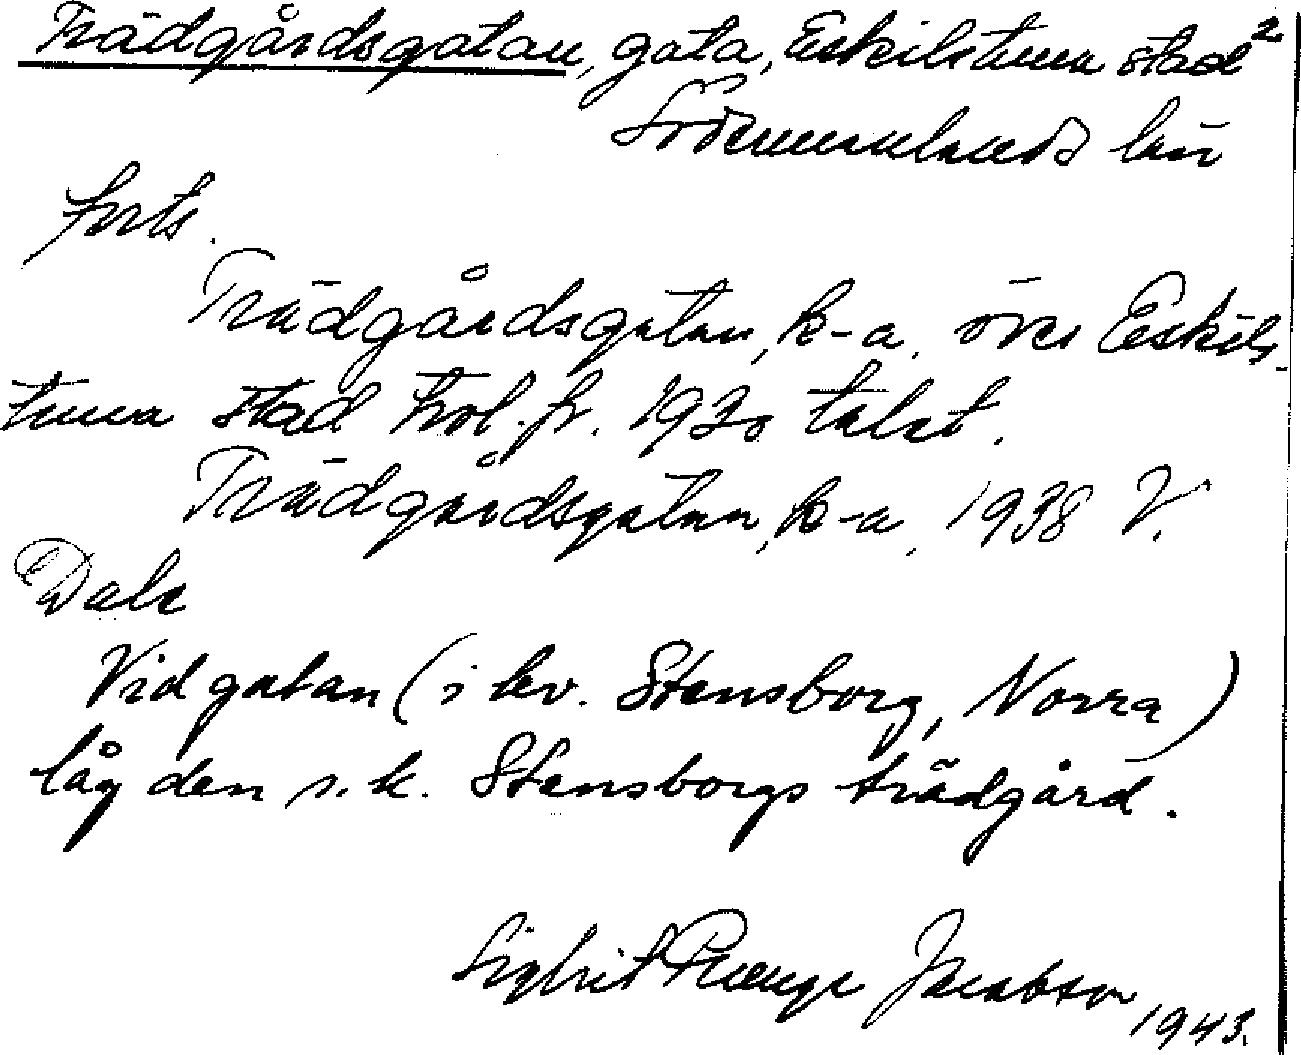 Trädgårdsgatan, gata, Eskilstuna stad 2
Södermanlands län
forts.
Trädgårdsgatan, k-a. över Eskils-
tuna stad trol. fr. 1930 talet.
Trädgårdsgatan, k-a, 1938 V.
Dale
Vid gatan (i kv. Stensborg, Norra)
låg den s.k. Stensborgs trädgård.
Sigbrit Plænge Jacobson
1943.